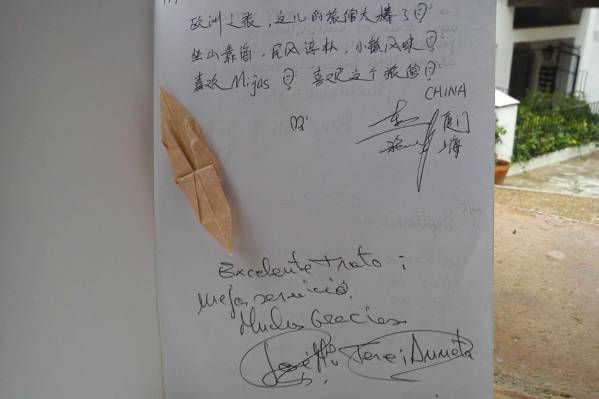 欧洲之旅，这儿的旅馆太棒了
坐山靠海，民风淳朴，小镇风味
喜欢 Mijas 喜欢这个旅馆
CHINA
厦门
上海
Excelente trato i
mejor servicio.
Muchas Gracias
José Mª, Tere i